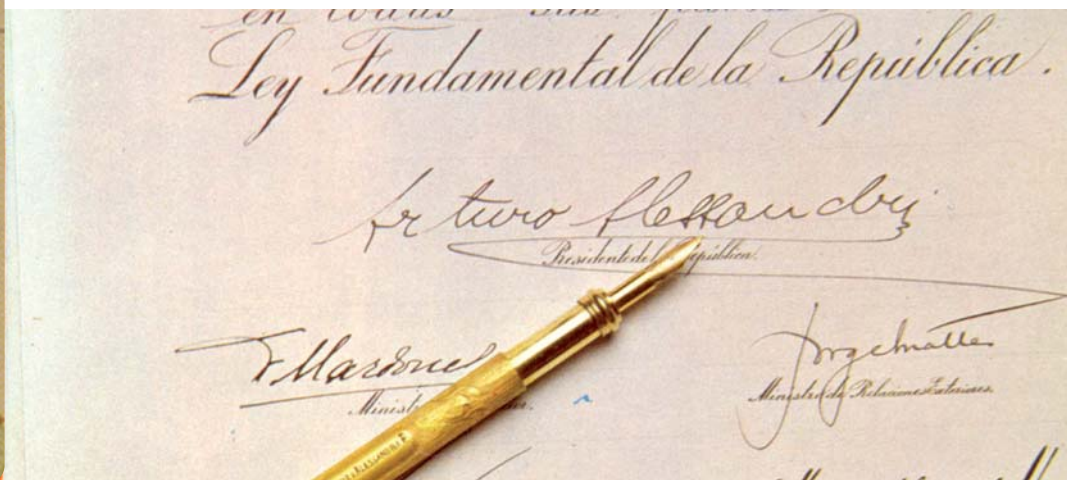 en todas sus
Ley Fundamental de la República.
Arturo Alessandri
Presidente de la República.
F Mardones
Jorge Matte
Ministro de Relaciones Exteriores.